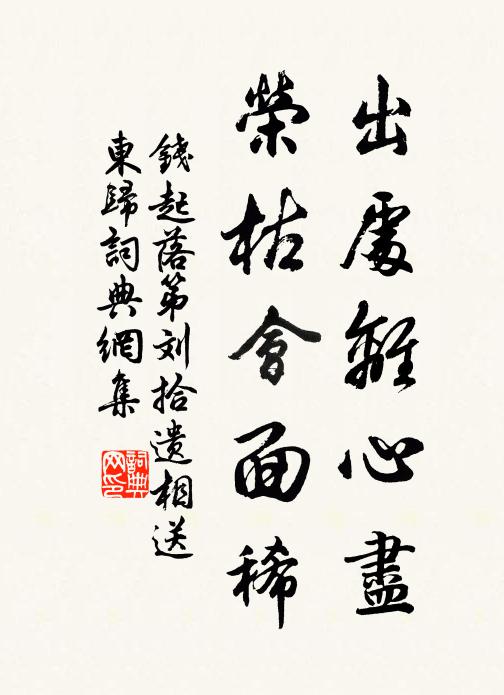 出處離心盡
榮枯會面稀
錢起落第刘拾遗相送
東歸詞典網集
詞典网印